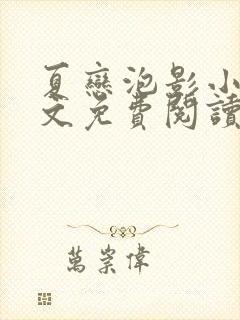 夏戀泡影小
文免費閱讀
萬崇偉